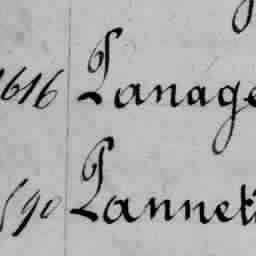 1616 Panage
590 Pannet